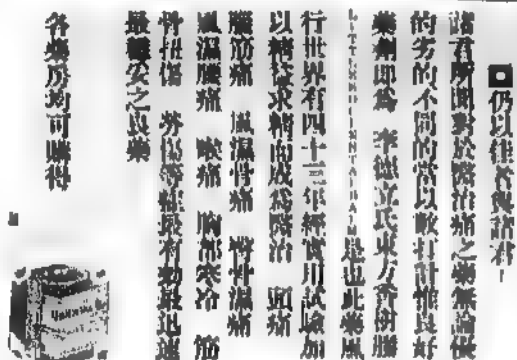 仍以佳名復諸君!
諸君所聞對於醫治痛之藥無論優
的劣的不同的當以敵打計惟良好
藥劑即為 李德立氏東方香樹膠
LITTLE'S ORIENTAL BALM 是也此藥風
行世界有四十三年經實用試驗加
以精益求精而成為醫治 頭痛
腦筋痛 風濕骨痛 臀骨濕痛
風濕腫痛 喉痛 胸部寒冷 筋
骨扭傷 勞傷等症最有効最迅速
最穩妥之良藥
各藥房均可購得